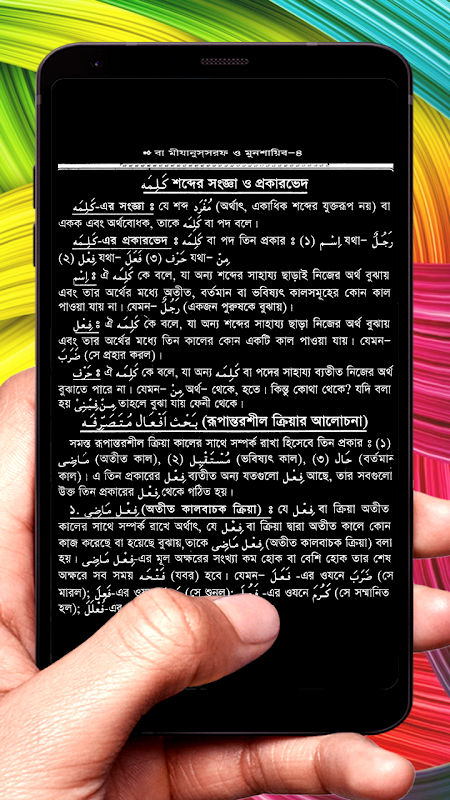 বা মীযানুস্সরফ ও মুনশায়িব–৪
كَلِمَه শব্দের সংজ্ঞা ও প্রকারভেদ
كَلِمَه-এর সংজ্ঞা : যে শব্দ مُفْرَد (অর্থাৎ, একাধিক শব্দের যুক্তরূপ নয়) বা
একক এবং অর্থবোধক, তাকে كَلِمَه বা পদ বলে।
كَلِمَه-এর প্রকারভেদ : كَلِمَه বা পদ তিন প্রকার : (১) اِسْم যথা– رَجُلٌ
(২) فِعْل যথা– فَعَلَ (৩) حَرْف যথা– مِنْ.
اِسْم : ঐ كَلِمَه কে বলে, যা অন্য শব্দের সাহায্য ছাড়াই নিজের অর্থ বুঝায়
এবং তার অর্থের মধ্যে অতীত, বর্তমান বা ভবিষ্যৎ কালসমূহের কোন কাল
পাওয়া যায় না। যেমন– رَجُلٌ (একজন পুরুষকে বুঝায়)।
فِعْل : ঐ كَلِمَه কে বলে, যা অন্য শব্দের সাহায্য ছাড়া নিজের অর্থ বুঝায়
এবং তার অর্থের মধ্যে তিন কালের কোন একটি কাল পাওয়া যায়। যেমন–
ضَرَبَ (সে প্রহার করল)।
حَرْف : ঐ كَلِمَه কে বলে, যা অন্য كَلِمَه বা পদের সাহায্য ব্যতীত নিজের অর্থ
বুঝাতে পারে না। যেমন– مِنْ অর্থ– থেকে, হতে। কিন্তু কোথা থেকে? যদি বলা
হয় مِنْ فِيْنِىْ তাহলে বুঝা যায় ফেনী থেকে।
بَحْث اَفْعَال مُتَصَرِّفَه (রূপান্তরশীল ক্রিয়ার আলোচনা)
সমস্ত রূপান্তরশীল ক্রিয়া কালের সাথে সম্পর্ক রাখা হিসেবে তিন প্রকার : (১)
مَاضِى (অতীত কাল), (২) مُسْتَقْبِل (ভবিষ্যৎ কাল), (৩) حَال (বর্তমান
কাল)। এ তিন প্রকারের فِعْل ব্যতীত অন্য যতগুলো فِعْل আছে, তার সবগুলো
উক্ত তিন প্রকারের فِعْل থেকে গঠিত হয়।
১. فِعْل مَاضِى (অতীত কালবাচক ক্রিয়া) : যে فِعْل বা ক্রিয়া অতীত
কালের সাথে সম্পর্ক রাখে অর্থাৎ, যে فِعْل বা ক্রিয়া দ্বারা অতীত কালে কোন
কাজ করেছে বা হয়েছে বুঝায়,তাকে فِعْل مَاضِى (অতীত কালবাচক ক্রিয়া) বলা
হয়। فِعْل مَاضِى-এর মূল অক্ষরের সংখ্যা কম হোক বা বেশি হোক তার শেষ
অক্ষরে সব সময় فَتْحَه (যবর) হবে। যেমন– فَعَلَ -এর ওযনে ضَرَبَ (সে
মারল); فَعِلَ-এর (সে শুনল); فَعُلَ -এর ওযনে كَرُمَ (সে সম্মানিত
হল); فَعْلَلَ-এর